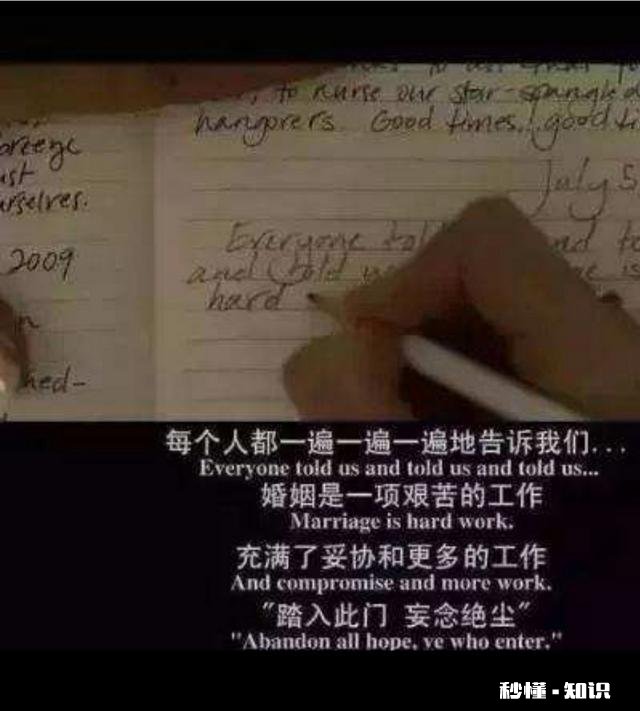 to nurse our star-spangled
hangovers. Good times, good ti
breeze
ust
urselves.
July 5
2009
Everyone tol nd to
and told u e is
hard
ned-
每个人都一遍一遍一遍地告诉我们...
Everyone told us and told us and told us...
婚姻是一项艰苦的工作
Marriage is hard work.
充满了妥协和更多的工作
And compromise and more work.
"踏入此门 妄念绝尘"
"Abandon all hope, ye who enter."
秒懂·知识